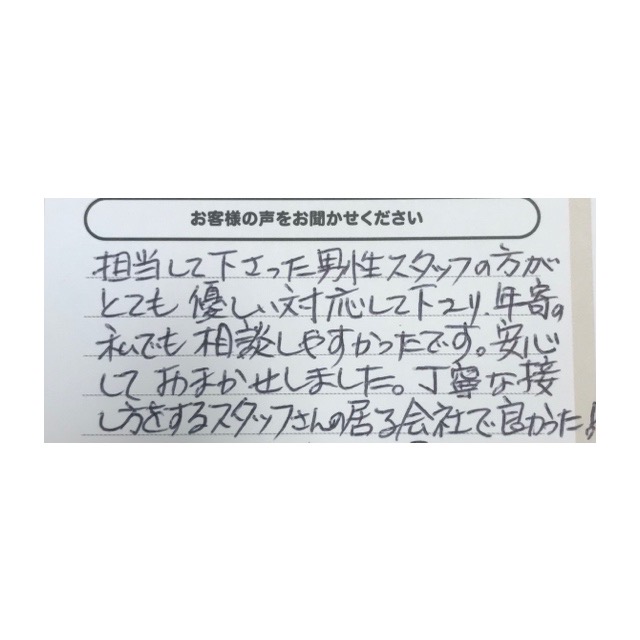 お客様の声をお聞かせください
担当して下さった男性スタッフの方が
とても優しい対応して下さり、年寄の
私でも相談しやすかったです。安心
しておまかせしました。丁寧な接
し方をするスタッフさんの居る会社で良かった!